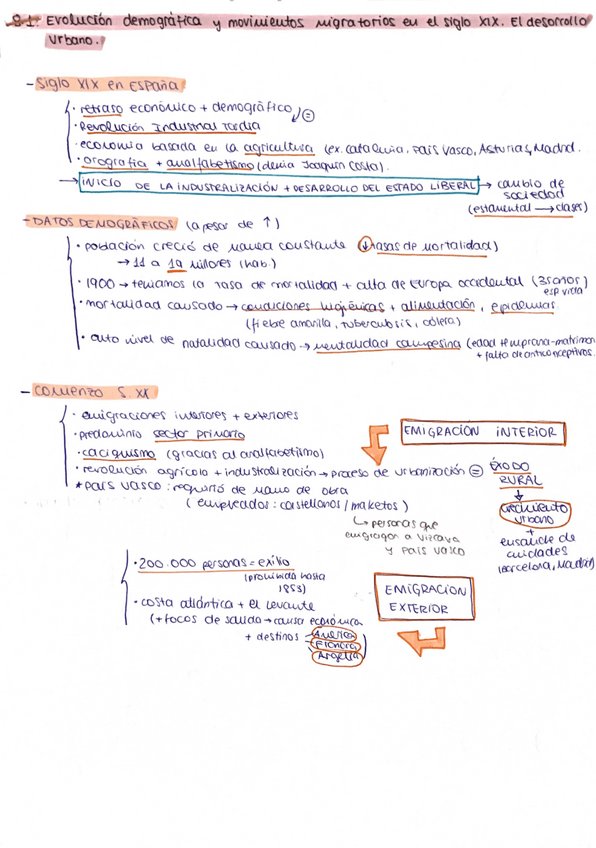 8.1. Evolución demográfica y movimientos migratorios en el siglo XIX. El desarrollo
urbano.
- Siglo XIX en España
· retraso económico + demográfico
· Revolución Industrial Tardía
· economía basada en la agricultura (ex. Cataluña, País Vasco, Asturias y Madrid.
· orografía + analfabetismo (decía Joaquín Costa).
→ INICIO DE LA INDUSTRALIZACIÓN + DESARROLLO DEL ESTADO LIBERAL → cambio de
sociedad
(estamental → clases)
- DATOS DEMOGRÁFICOS (a pesar de ↑)
· población creció de manera constante (↓ tasas de mortalidad)
→ 11 a 19 millones (hab.)
· 1900 → teníamos la tasa de mortalidad + alta de Europa occidental (35 años)
esp vida
· mortalidad causado → condiciones higiénicas + alimentación, epidemias
(fiebe amarilla, tuberculosis, cólera)
· alto nivel de natalidad causado → mentalidad campesina (edad temprana-matrimon
+ falta de anticonceptivos.
- COMIENZO S. XX
· emigraciones interiores + exteriores
· predominio sector primario
EMIGRACIÓN INTERIOR
· caciquismo (gracias al analfabetismo)
· revolución agrícola + industralización → proceso de urbanización = ÉXODO
RURAL
* País Vasco: requirió de mano de obra
(empleados: castellanos / maketos)
↓
crecimiento
urbano
+
ensanche de
cuidades
(Barcelona, Madrid)
↳ personas que
emigragon a Vizcaya
y País Vasco
· 200.000 personas = exilio
(prohibida hasta
1853)
EMIGRACION
EXTERIOR
· costa atlántica + el levante
(+ focos de salida → causa económica
+ destinos América
Francia
Argelia